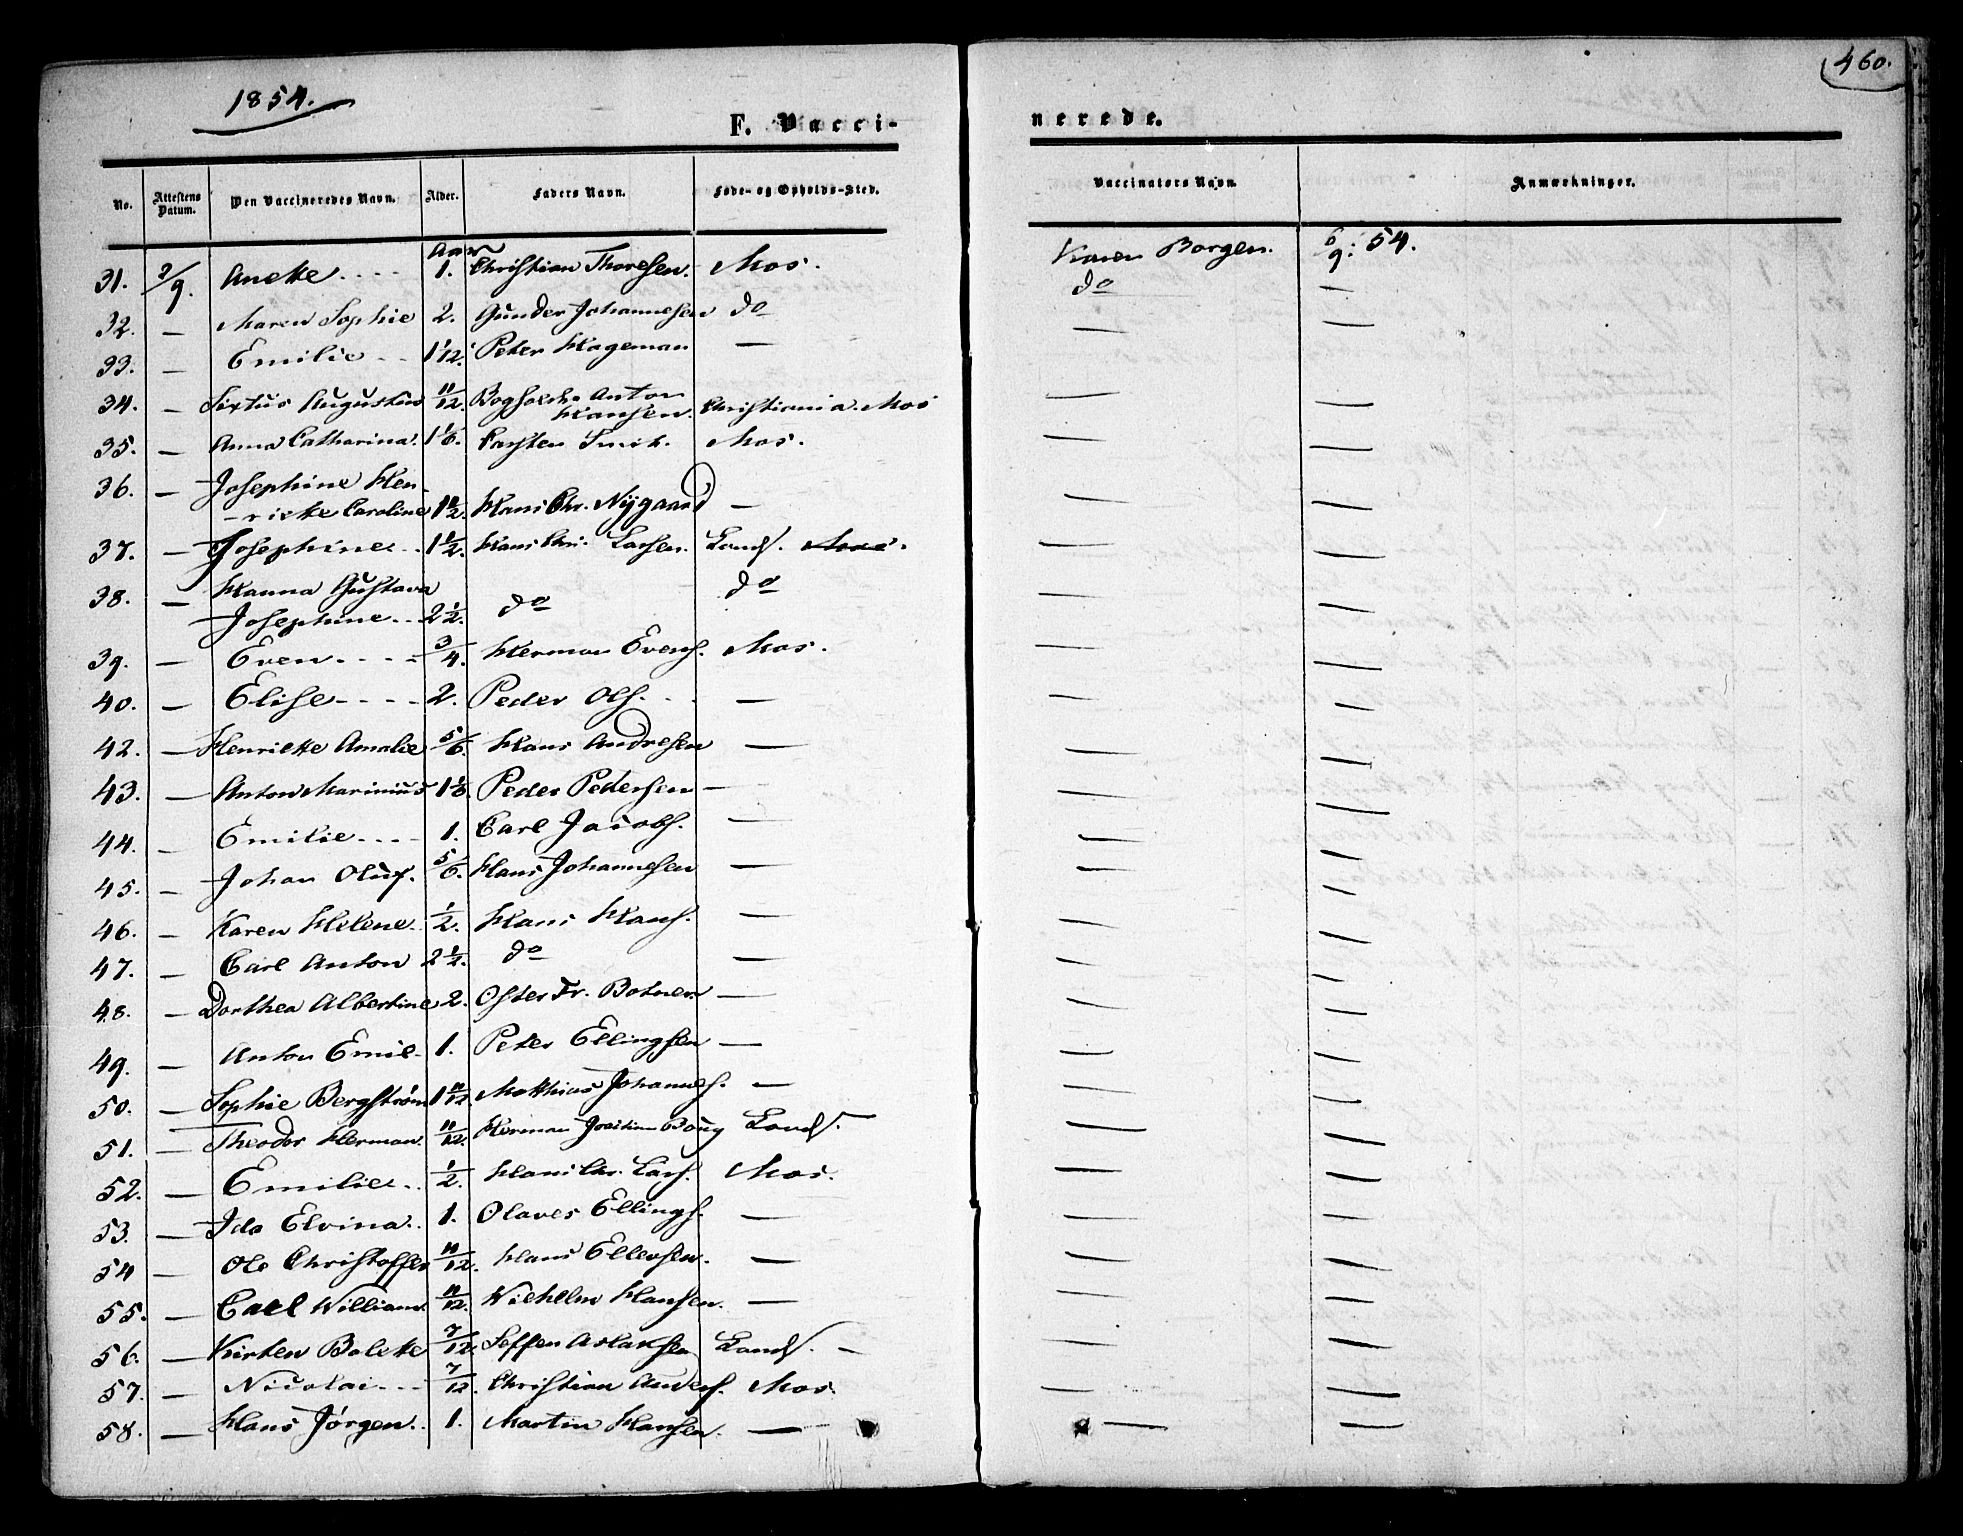 1854.
460.
F. Vacci-
nerede.
No. Attestens Datum. Den Vaccineredes Navn. Alder. Faders Navn. Føde- og Opholds-Sted. Vaccinators Navn. Anmærkninger.
Aar
31. 2/9. Anette.... 1. Christian Thoresen. Mos. Karen Borgen. 6/9: 54.
32. — Maren Sophie 2. Gunder Johannesen do do —
33. — Emilie .. 1 1/12. Peter Hageman — — —
34. — Sixtus Augustus 11/12. Bogholder Anton
Hansen. Christiania. Mos — —
35. — Anna Catharina. 1 1/6. Carsten Smit. Mos. — —
36. — Josephine Hen-
-riette Caroline 1 1/2. Hans Chr. Nygaard — — —
37. — Josephine.. 1 1/2. Hans Chr. Larsen. Lands. Mos. — —
38. — Hanna Gustava do
Josephine.. 2 1/2. do — —
39. — Even.... 3/4. Herman Evens. Mos. — —
40. — Elise.... 2. Peder Ols. — — —
42. — Henriette Amalie 5/6. Hans Andresen — — —
43. — Anton Marinius 1 1/6. Peder Pedersen — — —
44. — Emilie.... 1. Carl Jacobs. — — —
45. — Johan Oluf. 5/6. Hans Johannesen — — —
46. — Karen Helene. 1/2. Hans Hans. — — —
47. — Carl Anton 2 1/2. do — — —
48. — Dorthea Albertine 2. Fr. Botner — — —
49. — Anton Emil. 1. Peter Ellingsen — — —
50. — Sophie Bergstrøm 1 11/12. Matthias Johannes. — — —
51. — Theodor Herman. 11/12. Herman Joachim Lands. — —
52. — Emilie.. 1/2. Hans Chr. Lars. Mos. — —
53. — Ida Elvina.. 1. Olaves Ellings. — — —
54 — Ole Christoffer 11/12. Hans Ellevsen. — — —
55. — Carl William. 11/12. Wilhelm Hansen. — — —
56. — Kirsten Bolette 7/12. Seffen Aslaksen Lands. — — —
57. — Nicolai... 7/12. Christian Anders. Mos. — —
58. — Hans Jørgen.. 1. Martin Hansen. — — —